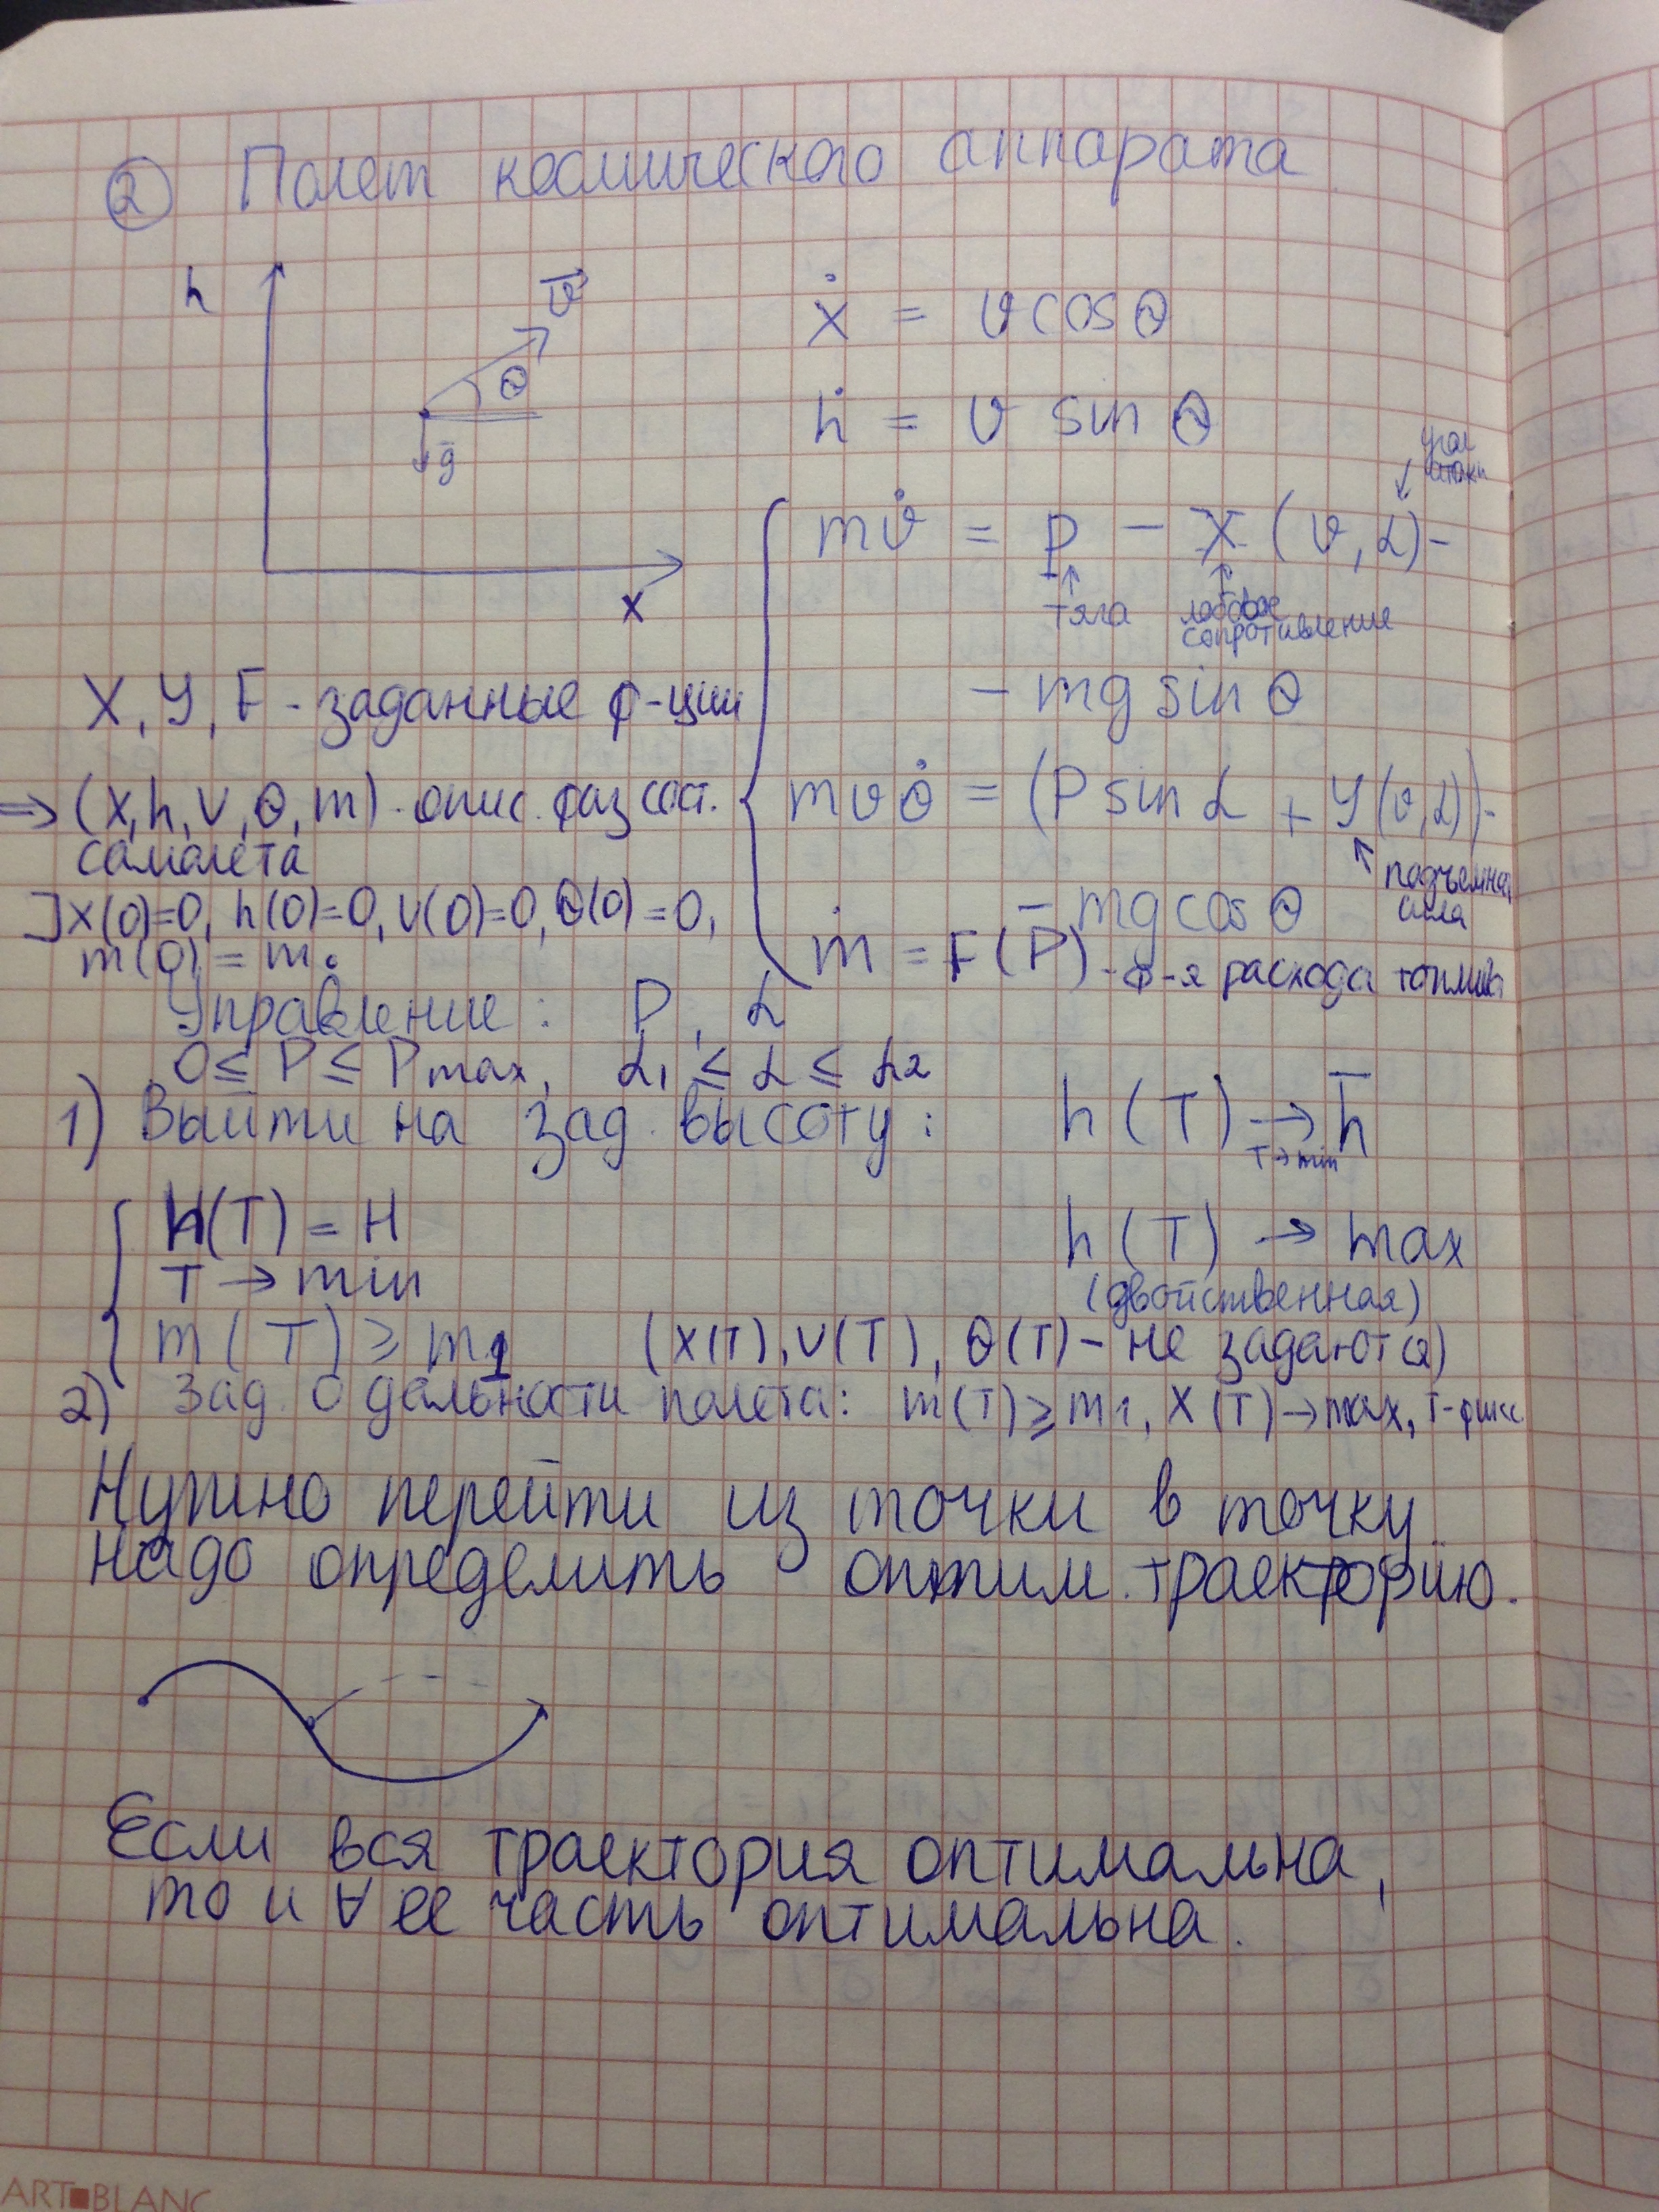 ② Полет космического аппарата
h
v̅
θ
g̅
x
ẋ = v cos θ
ḣ = v sin θ
угол
атаки
mv̇ = P − X (v, α) −
тяга
лобовое
сопротивление
− mg sin θ
X, Y, F - заданные ф-ции
mvθ̇ = (P sin α + Y(v, α)) −
подъемная
сила
− mg cos θ
⇒ (x, h, v, θ, m) - опис. фаз. сост.
самолета
] x(0)=0, h(0)=0, v(0)=0, θ(0)=0,
m(0) = m₀
ṁ = F(P) - ф-я расхода топлива
Управление: P, α
0 ≤ P ≤ Pmax, α₁ ≤ α ≤ α₂
1) Выйти на зад. высоту: h(T) → h̅
T→min
h(T) = H
T → min
h(T) → max
(двойственная)
m(T) ≥ m₁ (x(T), v(T), θ(T) - не задаются)
2) Зад. о дальности полета: m(T) ≥ m₁, x(T) → max, T-фикс
Нужно перейти из точки в точку
надо определить оптим. траекторию.
Если вся траектория оптимальна,
то и ∀ ее часть оптимальна.
ART BLANC